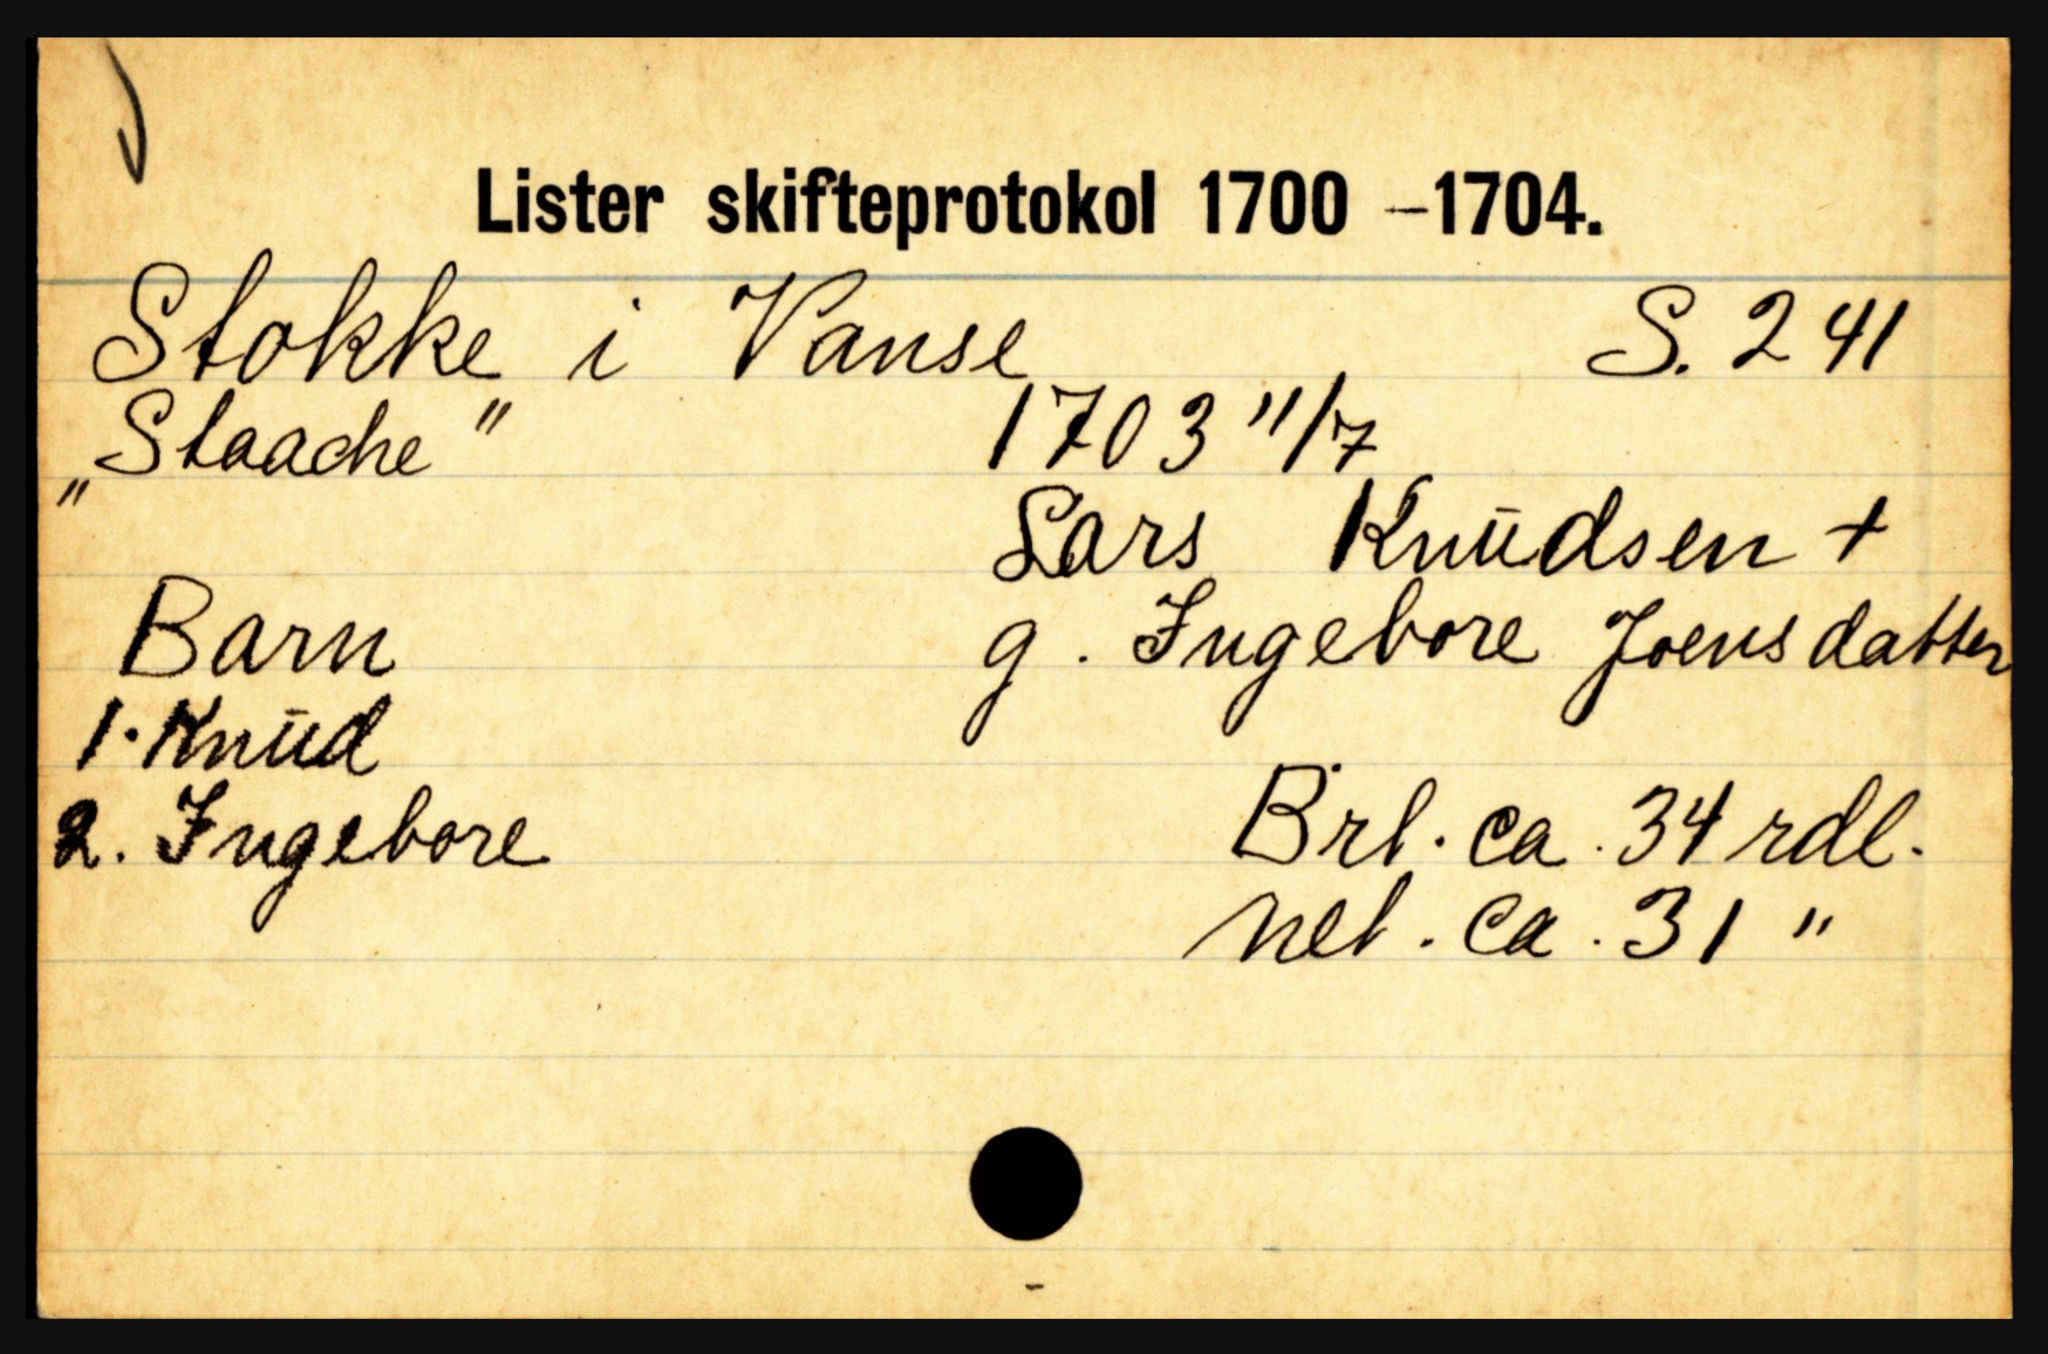 Lister skifteprotokol 1700 – 1704.
Stokke i Vanse S. 241
„Staache" 1703 11/7
Lars Knudsen +
Barn g. Ingebore Joensdatter
1. Knud
2. Ingebore Brt. ca. 34 rdl.
net. ca. 31 "